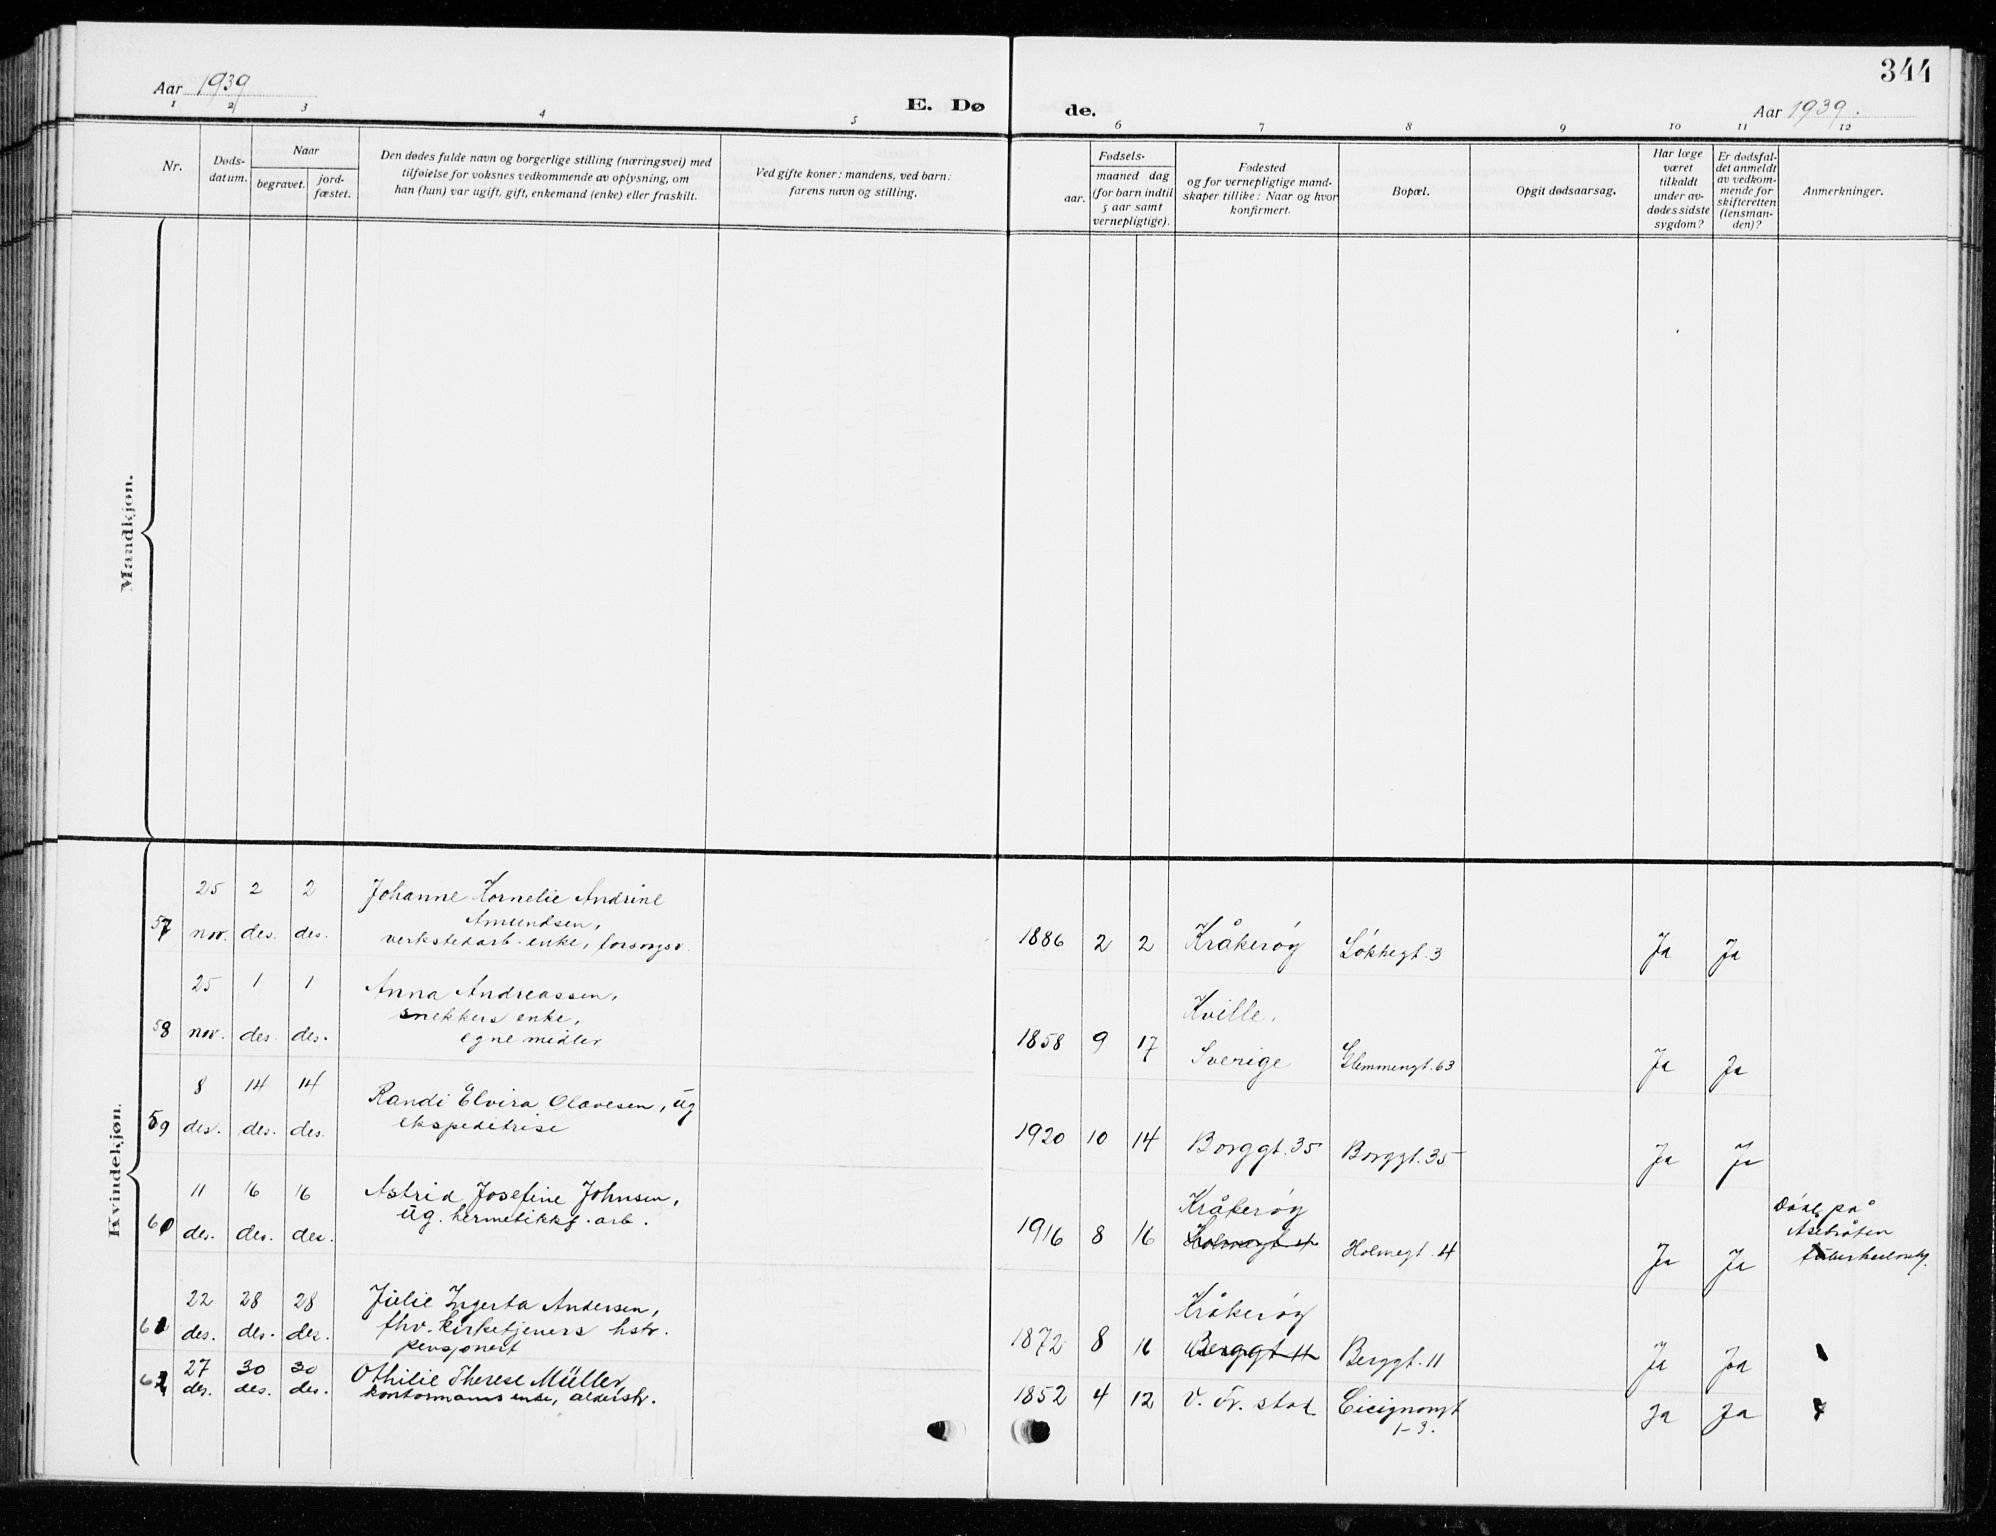 344
Aar 1939
E. Dø
de.
Aar 1939.
1 2 3 4 5 6 7 8 9 10 11 12
Nr.
Døds-
datum.
Naar
begravet.
jord-
fæstet.
Den dødes fulde navn og borgerlige stilling (næringsvei) med
tilføielse for voksnes vedkommende av oplysning, om
han (hun) var ugift, gift, enkemand (enke) eller fraskilt.
Ved gifte koner: mandens, ved barn:
farens navn og stilling.
Fødsels-
aar.
maaned dag
(for barn indtil
5 aar samt
vernepligtige).
Fødested
og for vernepligtige mand-
skaper tillike: Naar og hvor
konfirmert.
Bopæl.
Opgit dødsaarsag.
Har læge
været
tilkaldt
under av-
dødes sidste
sygdom?
Er dødsfal-
det anmeldt
av vedkom-
mende for
skifteretten
(lensman-
den)?
Anmerkninger.
Mandkjøn.
Kvindekjøn.
25 2 2 Johanne Kornelie Andrine
Amundsen,
57 nov. des. des. verkstedarb. enke, forsorgsv. 1886 2 2 Kråkerøy Løkkegt. 3 Ja Ja
25 1 1 Anna Andreassen,
snekkers enke, Kville,
58 nov. des. des. egne midler 1858 9 17 Sverige Glemmengt. 63 Ja Ja
8 14 14 Randi Elvira Olavesen, ug
59 des. des. des. ekspeditrise 1920 10 14 Borggt. 35 Borggt. 35 Ja Ja
11 16 16 Astrid Josefine Johnsen, Kråkerøy Døde på
60 des. des. des. ug. hermetikkf. arb. 1916 8 16 Holmegt 4 Holmegt. 4 Ja Ja
22 28 28 Julie Ingerta Andersen, Kråkerøy
61 des. des. des. fhv. kirketjeners hstr. 1872 8 16 Berggt 11 Berggt. 11 Ja Ja
pensjonert
62 27 30 30 Othilie Therese Müller,
des. des. des. kontormanns enke, alderstr. 1852 4 12 V. Fr. stad Cicignongt
1-3. Ja Ja